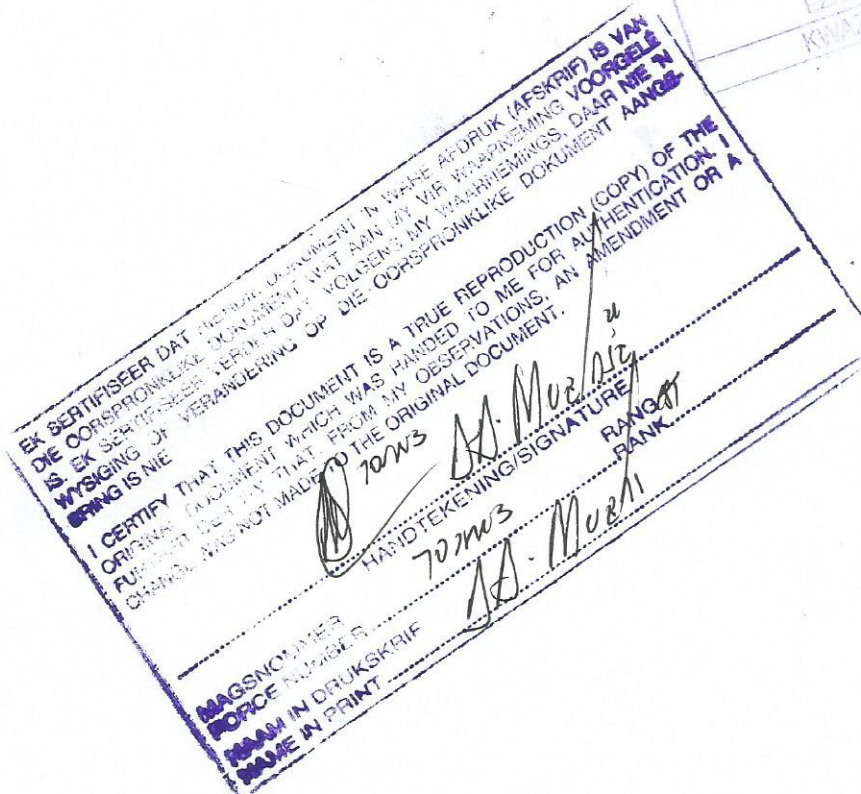 KWAZ
EK SERTIFISEER DAT HIERDIE DOKUMENT 'N WARE AFDRUK (AFSKRIF) IS VAN
DIE OORSPRONKLIKE DOKUMENT WAT AAN MY VIR WAARNEMING VOORGELÊ
IS. EK SERTIFISEER VERDER DAT VOLGENS MY WAARNEMINGS, DAAR NIE 'N
WYSIGING OF VERANDERING OP DIE OORSPRONKLIKE DOKUMENT AANGE-
BRING IS NIE
I CERTIFY THAT THIS DOCUMENT IS A TRUE REPRODUCTION (COPY) OF THE
ORIGINAL DOCUMENT WHICH WAS HANDED TO ME FOR AUTHENTICATION. I
FURTHER CERTIFY THAT, FROM MY OBSERVATIONS, AN AMENDMENT OR A
CHANGE WAS NOT MADE TO THE ORIGINAL DOCUMENT.
HANDTEKENING/SIGNATURE
MAGSNOMMER RANG
FORCE NUMBER RANK
NAAM IN DRUKSKRIF
NAME IN PRINT